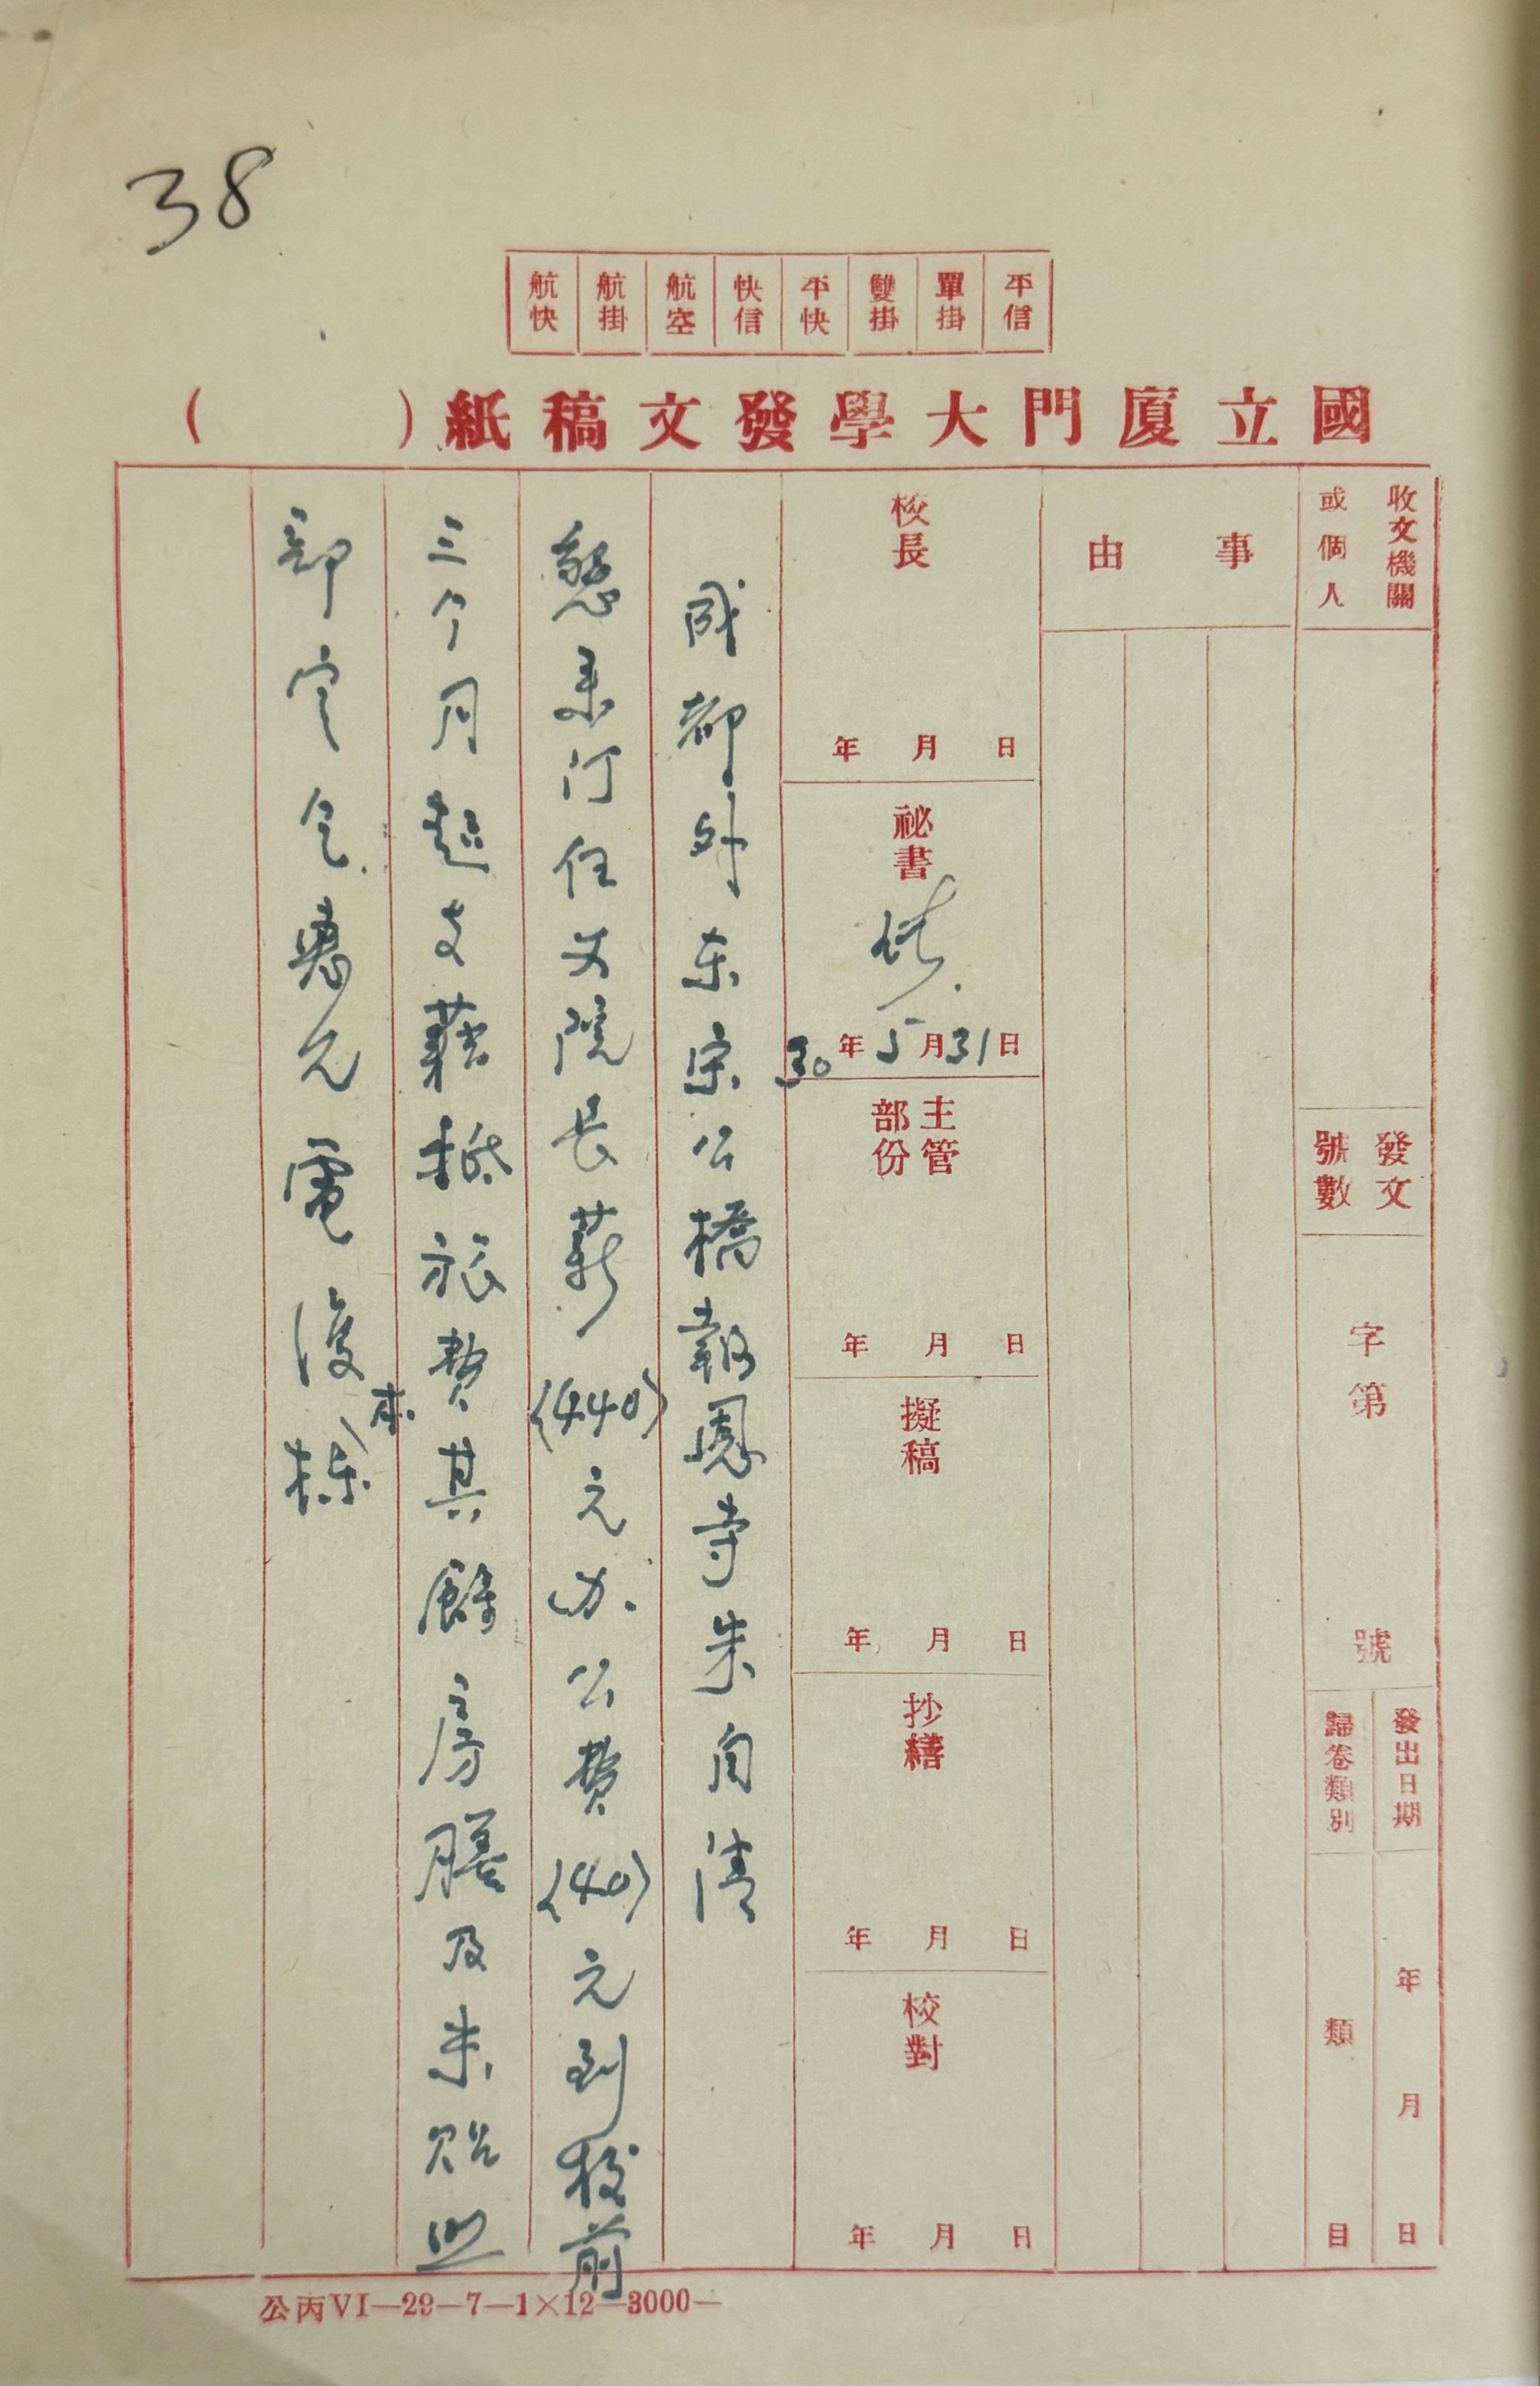 38
平信 單掛 雙掛 平快 快信 航空 航掛 航快
國立廈門大學發文稿紙（　　）
收文機關
或個人
發文
號數
字第　號
發出日期　年　月　日
歸卷類別　類　目
事由
校長　年　月　日
祕書　30年5月31日
主管
部份　年　月　日
擬稿　年　月　日
抄繕　年　月　日
校對　年　月　日
成都外东宋公橋報恩寺朱自清
懇来汀任文院長薪(440)元办公費(40)元到校前
三个月起支藉抵旅費其餘房膳及米贴照
部定乞惠允電復
本栋
公丙VI—29—7—1×12—3000—